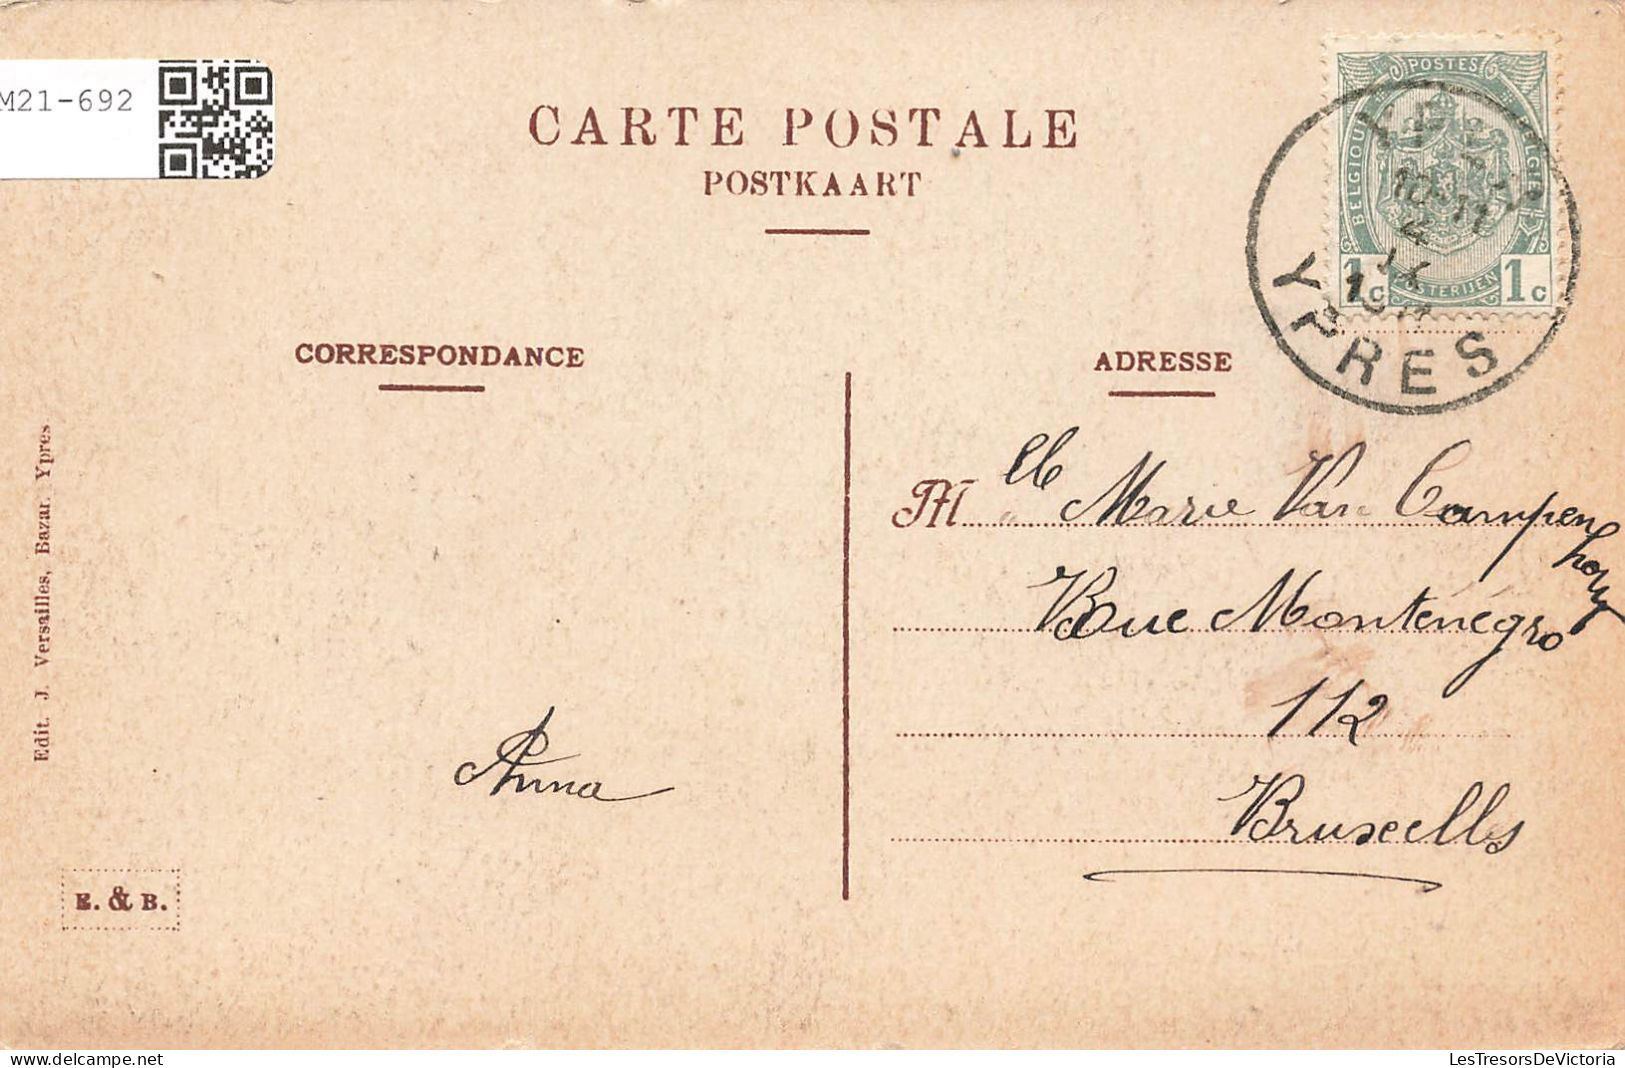 M21-692
CARTE POSTALE
POSTKAART
POSTES
BELGIQUE
BELGIË
POSTERIJEN
1c 1c
10-11
4
IX
YPRES
CORRESPONDANCE
ADRESSE
Mlle Marie Van Campen
hout
Rue Monténégro
112
Bruxelles
Anna
Edit. J. Versailles, Bazar. Ypres
E. & B.
delcampe.net
LesTresorsDeVictoria